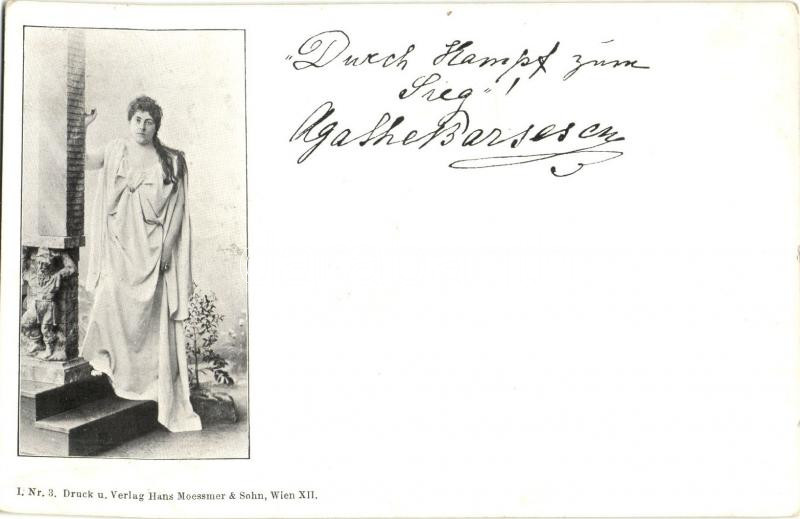 „Durch Kampf zum
Sieg“!
Agathe Barsescu
I. Nr. 3. Druck u. Verlag Hans Moessmer & Sohn, Wien XII.